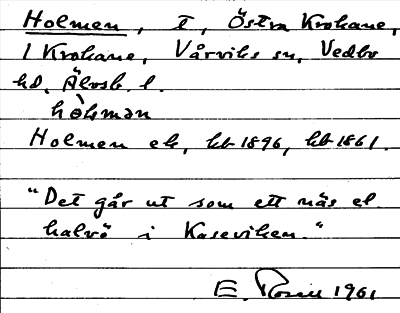 Holmen, t, Östra Krokane,
1 Krokane, Vårviks sn, Vedbo
hd, Älvsb. l.
hòlman
Holmen ek, kb 1896, kb 1861.
"Det går ut som ett näs el.
halvö i Kaseviken."
E. 1961